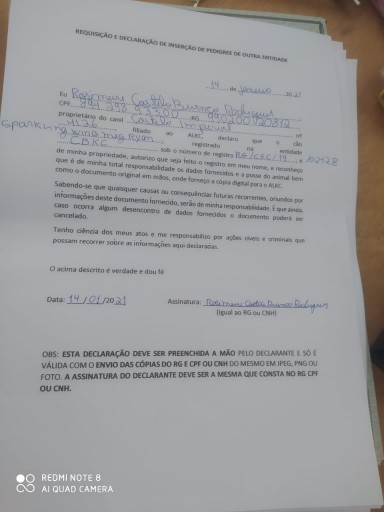 REQUISIÇÃO E DECLARAÇÃO DE INSERÇÃO DE PEDIGREE DE OUTRA ENTIDADE
14 de janeiro 2021
Eu Rosimeri Castilho Buonos Rodrigues
CPF RG
proprietário do canil Castilo Imperial nº
4126 filiado ao ALKC, declaro que o cão
Sparkling registrado na entidade
CBKC sob o número de registro
de minha propriedade, autorizo que seja feito o registro em meu nome, e reconheço
que é de minha total responsabilidade os dados fornecidos e a posse do animal bem
como o documento original em mãos, onde forneço a cópia digital para o ALKC.
Sabendo-se que quaisquer causas ou consequências futuras recorrentes, oriundos por
informações deste documento fornecido, serão de minha responsabilidade. E que ainda
caso ocorra algum desencontro de dados fornecidos o documento poderá ser
cancelado.
Tenho ciência dos meus atos e me responsabilizo por ações cíveis e criminais que
possam recorrer sobre as informações aqui declaradas.
O acima descrito é verdade e dou fé
Data: 14/01/2021 Assinatura: Rosimeri Castilho Buonos Rodrigues
(Igual ao RG ou CNH)
OBS: ESTA DECLARAÇÃO DEVE SER PREENCHIDA A MÃO PELO DECLARANTE E SÓ É
VÁLIDA COM O ENVIO DAS CÓPIAS DO RG E CPF OU CNH DO MESMO EM JPEG, PNG OU
FOTO. A ASSINATURA DO DECLARANTE DEVE SER A MESMA QUE CONSTA NO RG CPF
OU CNH.
REDMI NOTE 8
AI QUAD CAMERA